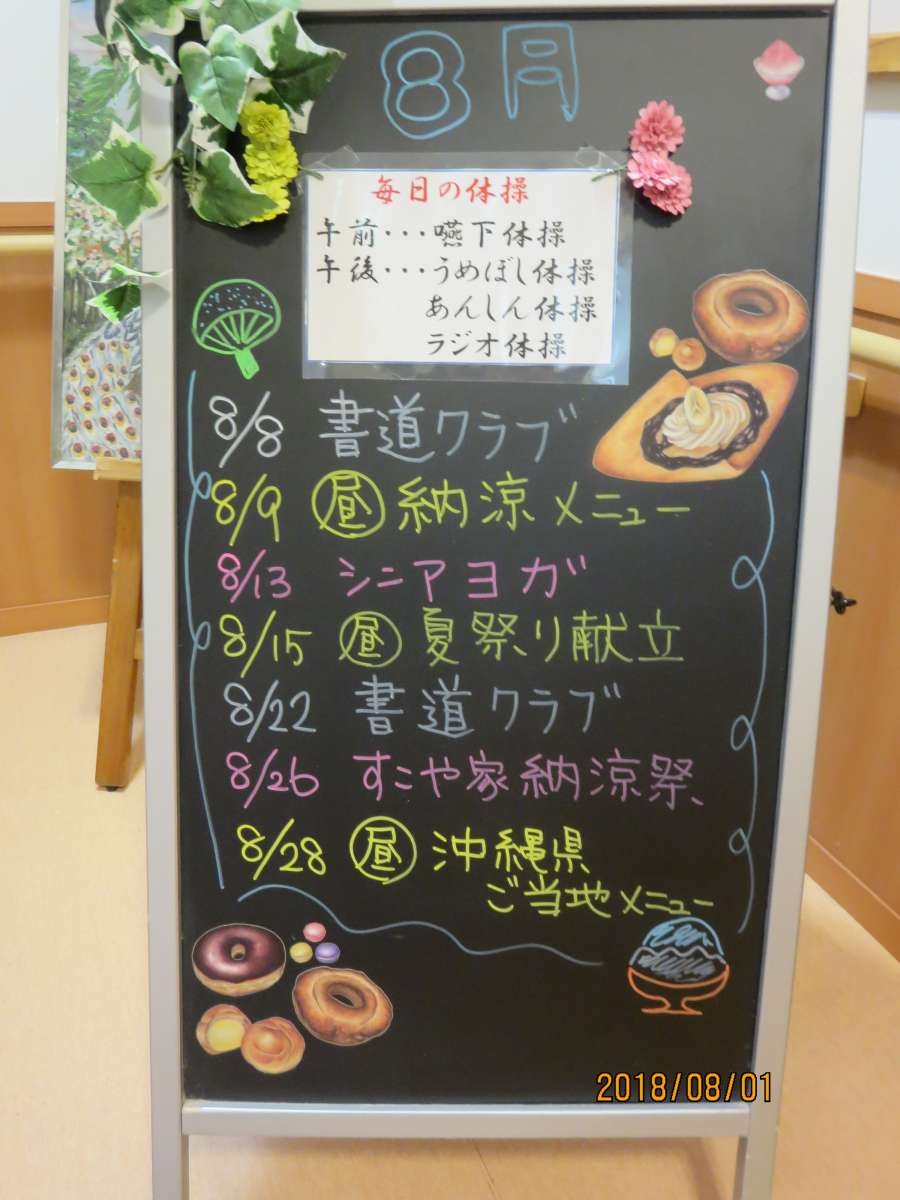 8月
毎日の体操
午前・・・嚥下体操
午後・・・うめぼし体操
あんしん体操
ラジオ体操
8/8 書道クラブ
8/9 昼 納涼メニュー
8/13 シニアヨガ
8/15 昼 夏祭り献立
8/22 書道クラブ
8/26 すこや家納涼祭
8/28 昼 沖縄県
ご当地メニュー
2018/08/01